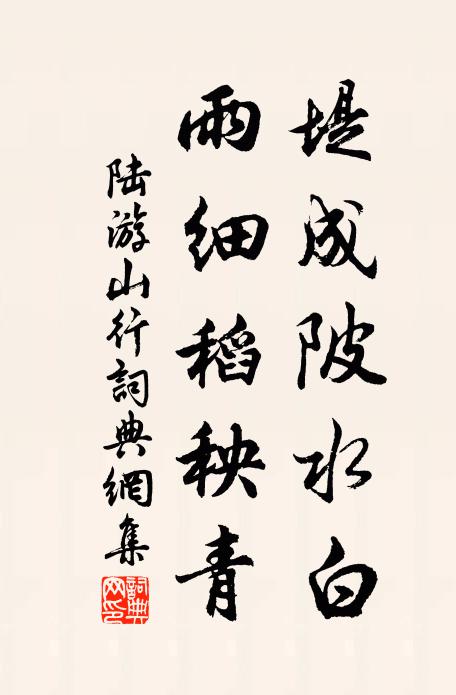 堤成陂水白
雨细稻秧青
陆游山行詞典網集
詞典網印